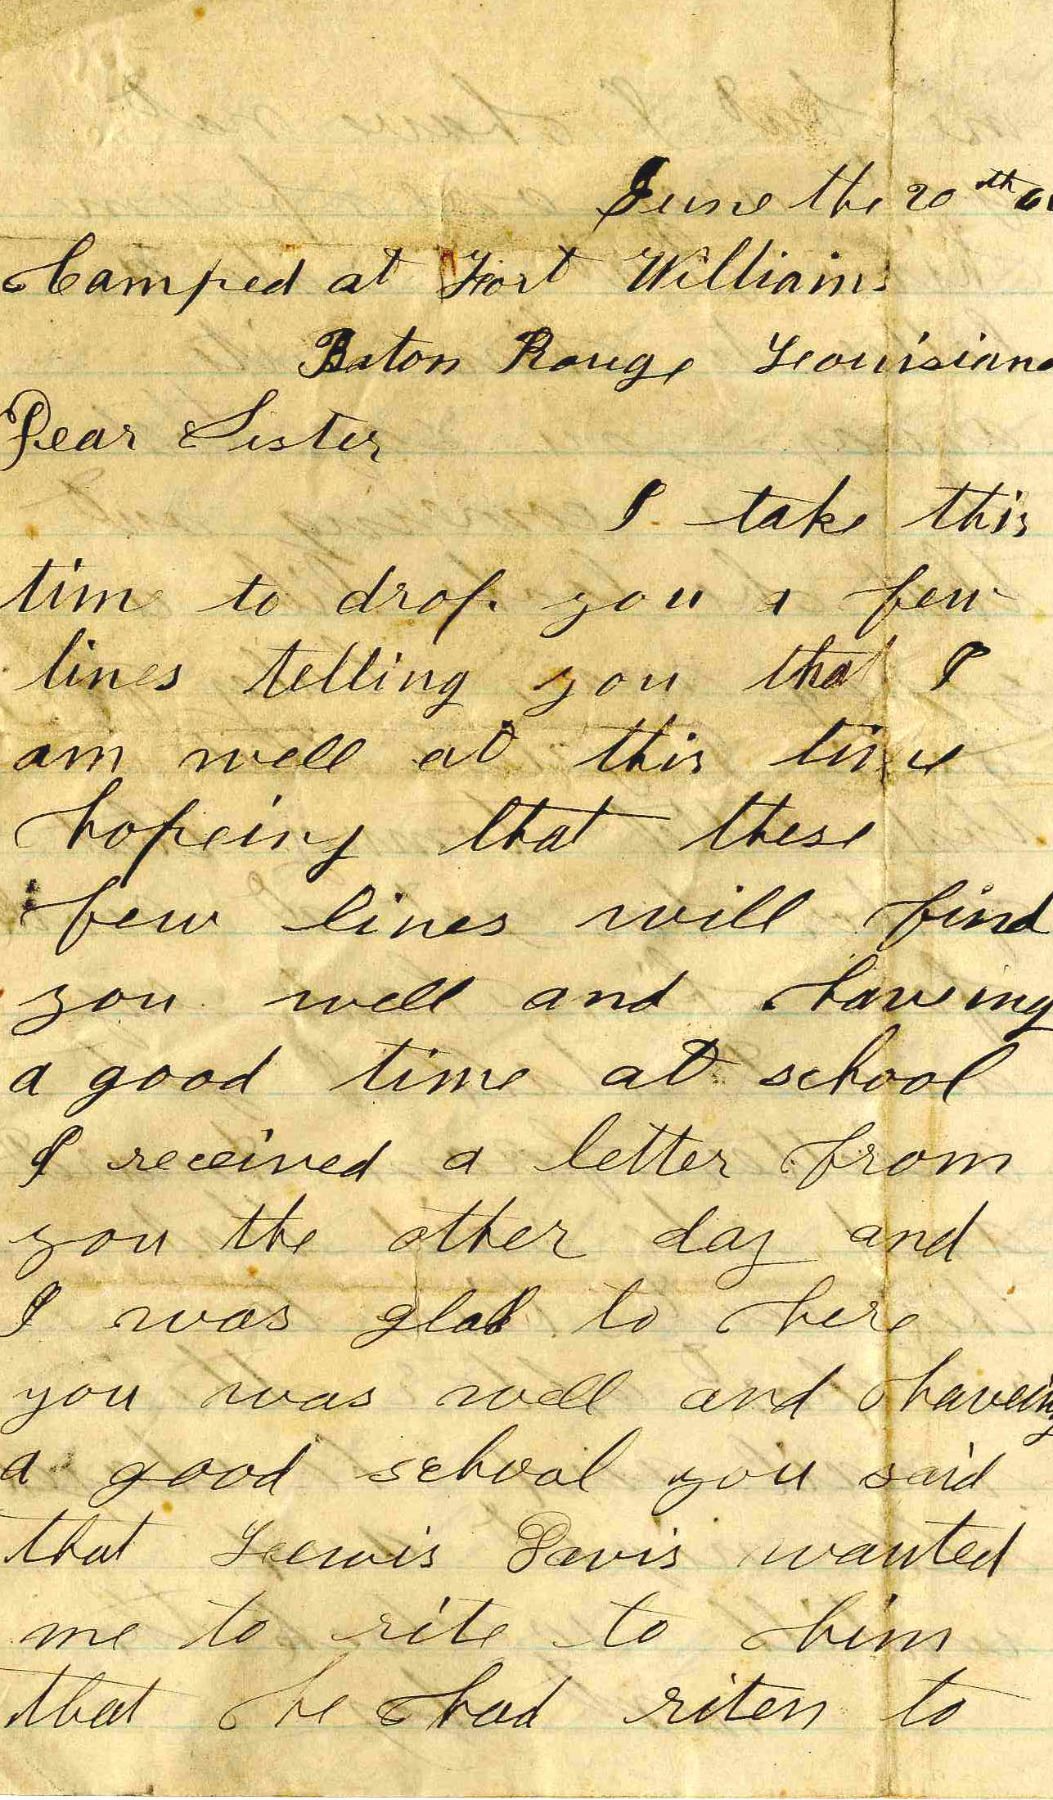 June the 20th
Camped at Fort Williams
Baton Rouge Leouisiana
Dear Sister
I take this
time to drop you a few
lines telling you that I
am well at this time
hopeing that these
few lines will find
you well and haveing
a good time at school
I received a letter from
you the other day and
I was glad to here
you was well and haveing
a good school you said
that Leewis Davis wanted
me to rite to him
that he had riten to